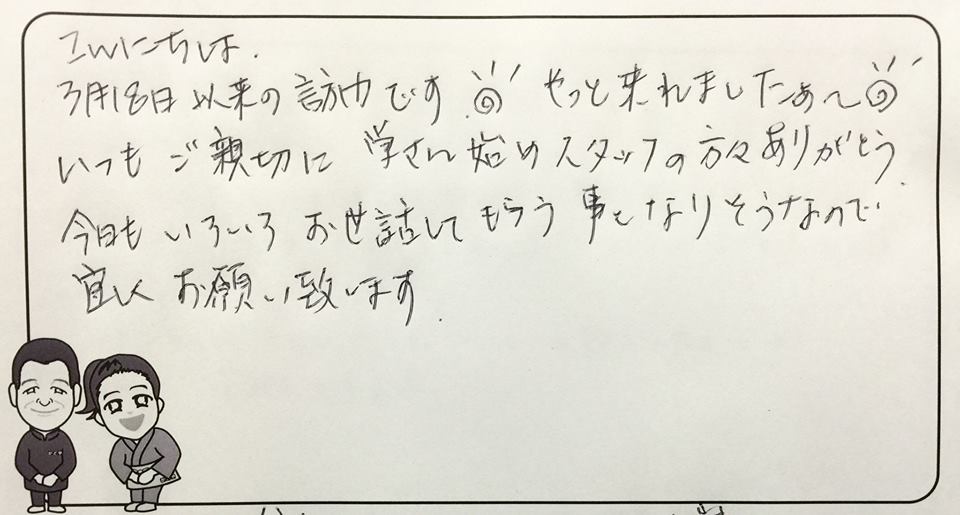 こんにちは.
3月18日以来の訪巾です やっと来れましたぁ〜
いつもご親切に 学さん始めスタッフの方々ありがとう.
今日も いろいろ お世話してもらう事となりそうなので
宜しく お願い致します.